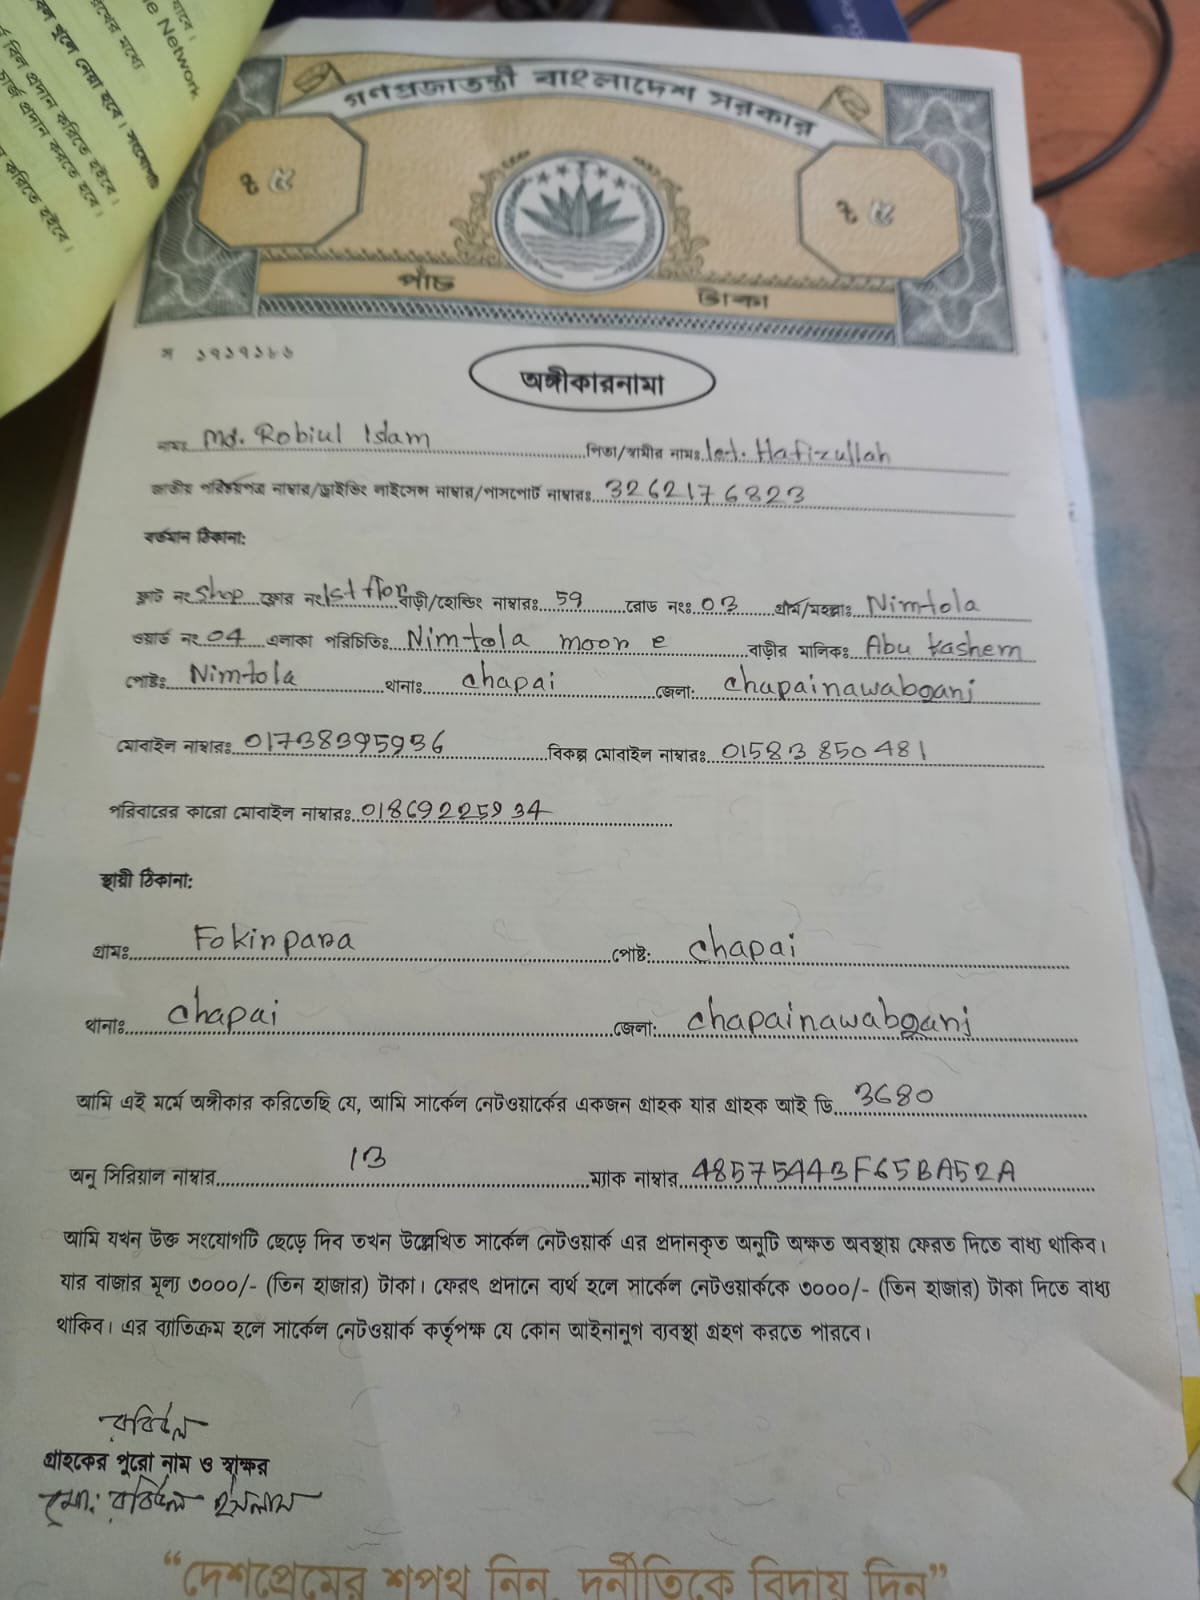 যাবে।
e Network
রখের মধ্যে
বল খুলে নেয়া হবে। সংযোগটি
বিল প্রদান করিতে হইবে।
চার্জ প্রদান করতে হবে।
করিতে হইবে।
গণপ্রজাতন্ত্রী বাংলাদেশ সরকার
৳ ৫
৳ ৫
পাঁচ টাকা
অঙ্গীকারনামা
নামঃ Md. Robiul Islam পিতা/স্বামীর নামঃ Let. Hafizullah
জাতীয় পরিচয়পত্র নাম্বার/ড্রাইভিং লাইসেন্স নাম্বার/পাসপোর্ট নাম্বারঃ 3262176823
বর্তমান ঠিকানা:
ফ্লাট নং shop ফ্লোর নং 1st flor বাড়ী/হোল্ডিং নাম্বারঃ 59 রোড নংঃ 03 গ্রাম/মহল্লাঃ Nimtola
ওয়ার্ড নং 04 এলাকা পরিচিতিঃ Nimtola moor e বাড়ীর মালিকঃ Abu Kashem
পোষ্টঃ Nimtola থানাঃ chapai জেলা: chapainawabganj
মোবাইল নাম্বারঃ 01738395936 বিকল্প মোবাইল নাম্বারঃ 01583850481
পরিবারের কারো মোবাইল নাম্বারঃ 01869225934
স্থায়ী ঠিকানা:
গ্রামঃ Fokirpara পোষ্ট: chapai
থানাঃ chapai জেলা: chapainawabganj
আমি এই মর্মে অঙ্গীকার করিতেছি যে, আমি সার্কেল নেটওয়ার্কের একজন গ্রাহক যার গ্রাহক আই ডি 3680
অনু সিরিয়াল নাম্বার 13 ম্যাক নাম্বার 48575443F65BA52A
আমি যখন উক্ত সংযোগটি ছেড়ে দিব তখন উল্লেখিত সার্কেল নেটওয়ার্ক এর প্রদানকৃত অনুটি অক্ষত অবস্থায় ফেরত দিতে বাধ্য থাকিব।
যার বাজার মূল্য ৩০০০/- (তিন হাজার) টাকা। ফেরৎ প্রদানে ব্যর্থ হলে সার্কেল নেটওয়ার্ককে ৩০০০/- (তিন হাজার) টাকা দিতে বাধ্য
থাকিব। এর ব্যাতিক্রম হলে সার্কেল নেটওয়ার্ক কর্তৃপক্ষ যে কোন আইনানুগ ব্যবস্থা গ্রহণ করতে পারবে।
রবিউল
গ্রাহকের পুরো নাম ও স্বাক্ষর
মো: রবিউল ইসলাম
“দেশপ্রেমের শপথ নিন, দুর্নীতিকে বিদায় দিন”